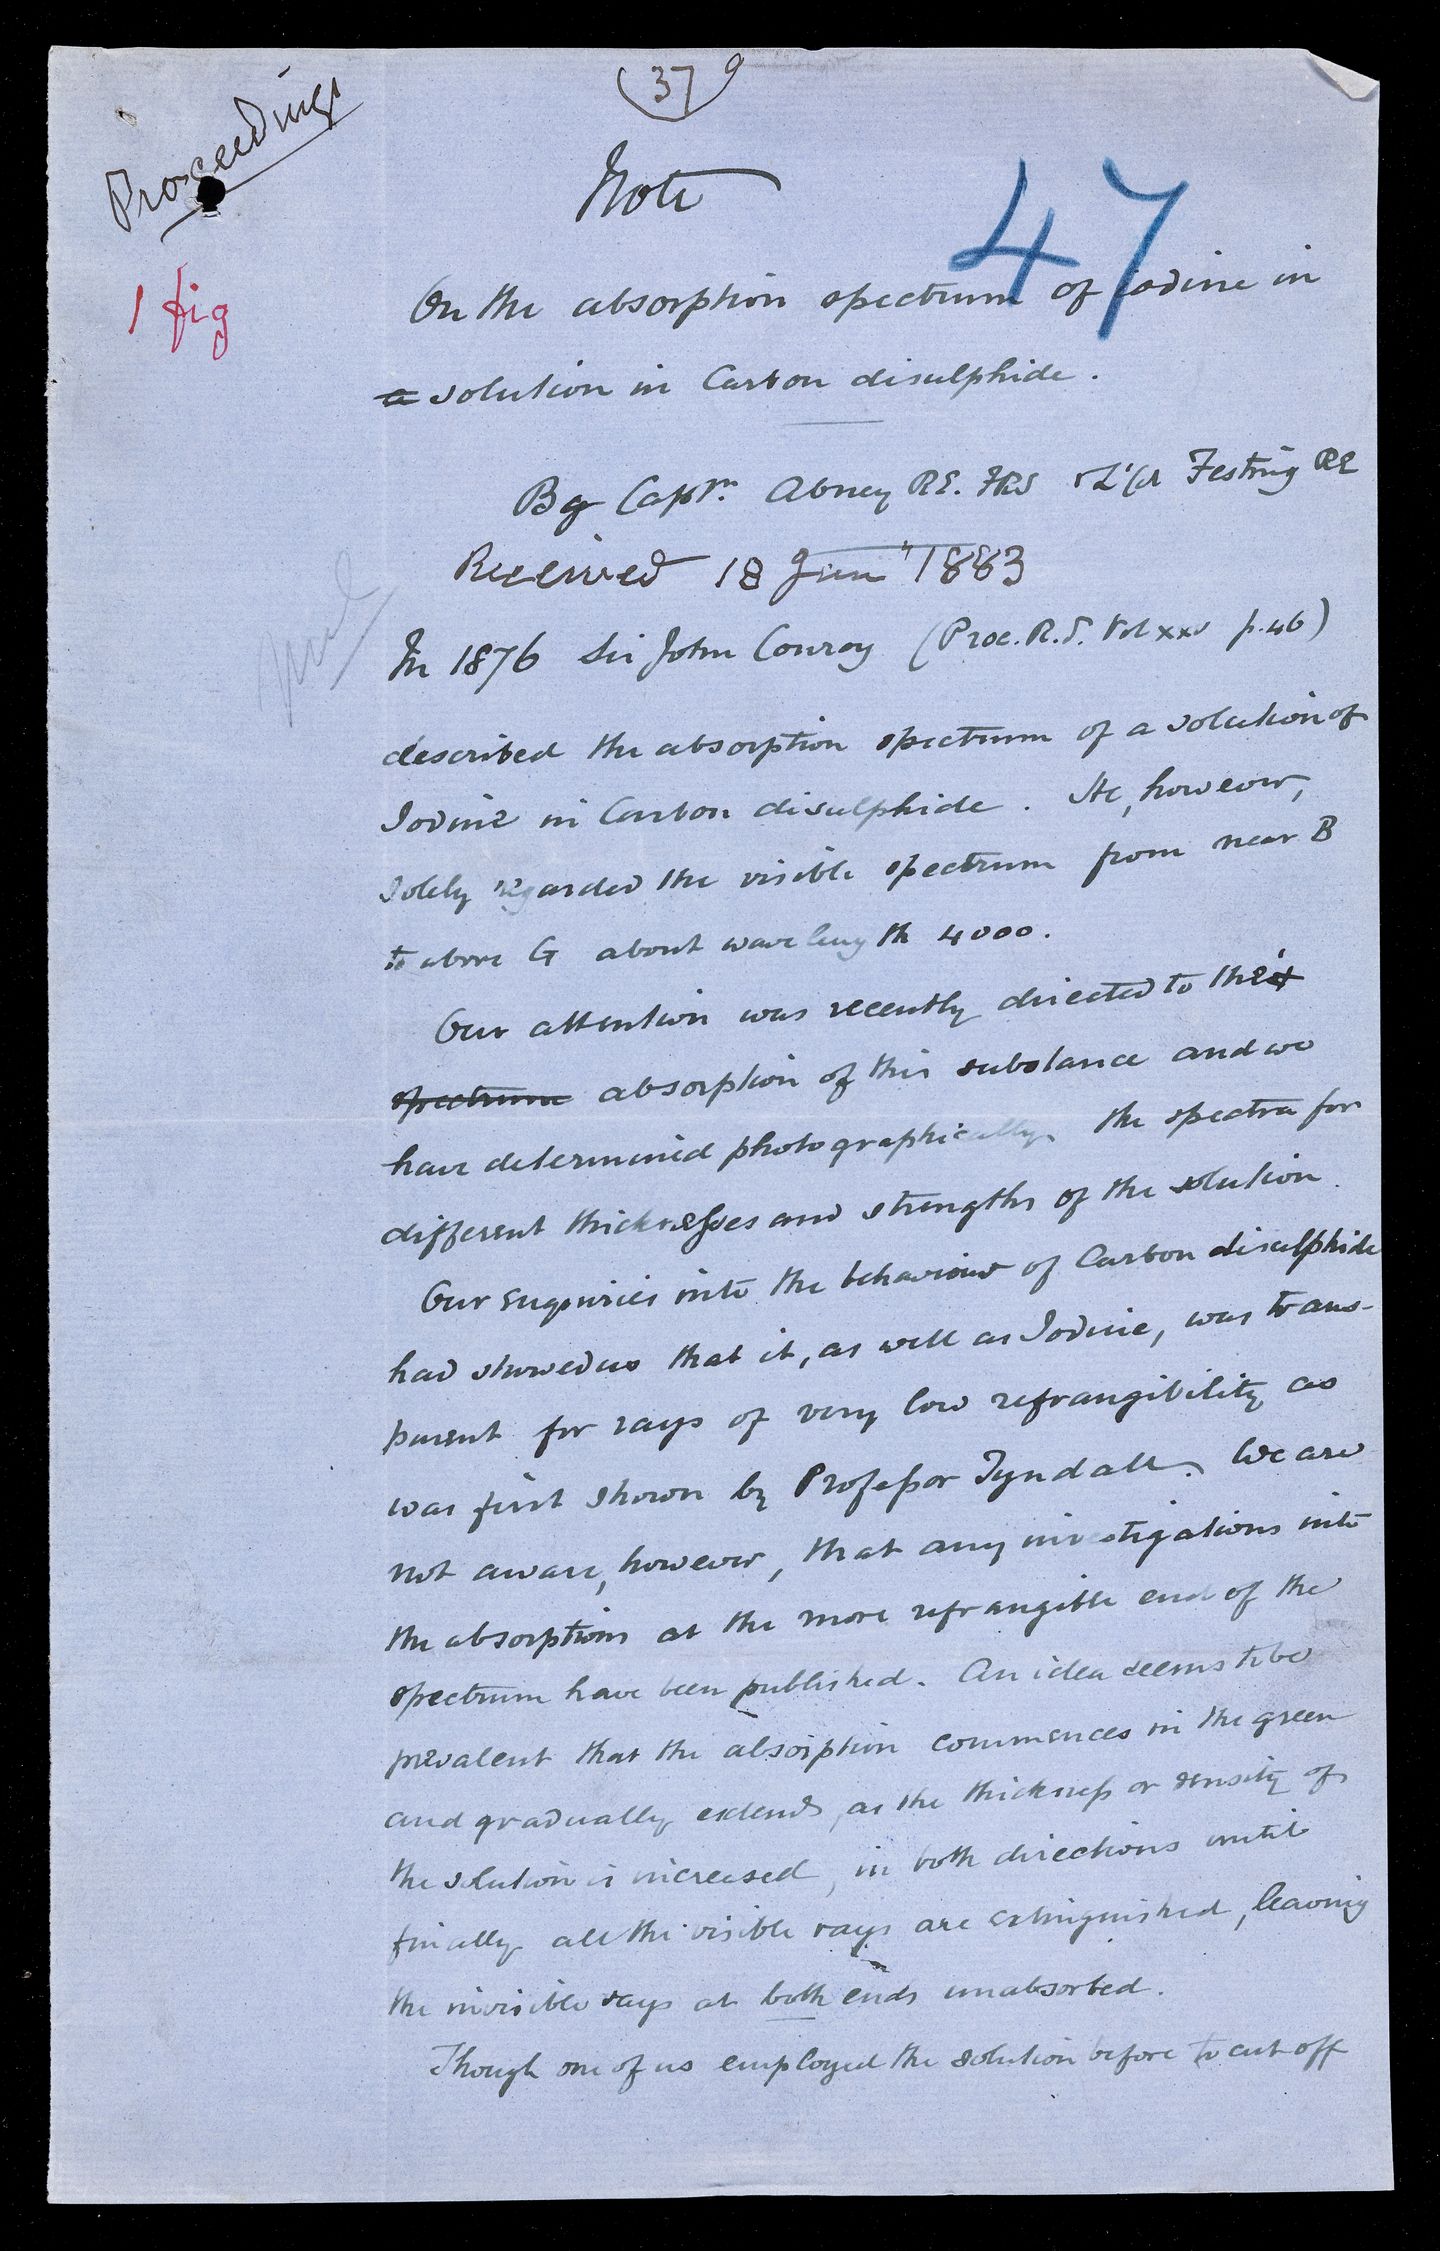 (37)
Proceedings
Note
47
1 fig
On the absorption spectrum of Iodine in
a solution in Carbon disulphide.
By Captn. Abney RE. FRS & Lt Col Festing RE
Received 18 June 1883
In 1876 Sir John Conroy (Proc. R.S. Vol xxv p. 46)
described the absorption spectrum of a solution of
Iodine in Carbon disulphide. He, however,
solely regarded the visible spectrum from near B
to above G about wave length 4000.
Our attention was recently directed to the
spectrum absorption of this substance and we
have determined photographically the spectra for
different thicknesses and strengths of the solution.
Our enquiries into the behaviour of Carbon disulphide
had showed us that it, as well as Iodine, was trans-
parent for rays of very low refrangibility as
was first shown by Professor Tyndall. We are
not aware, however, that any investigations into
the absorptions at the more refrangible end of the
spectrum have been published. An idea seems to be
prevalent that the absorption commences in the green
and gradually extends, as the thickness or density of
the solution is increased, in both directions until
finally all the visible rays are extinguished, leaving
the invisible rays at both ends unabsorbed.
Though one of us employed the solution before to cut off